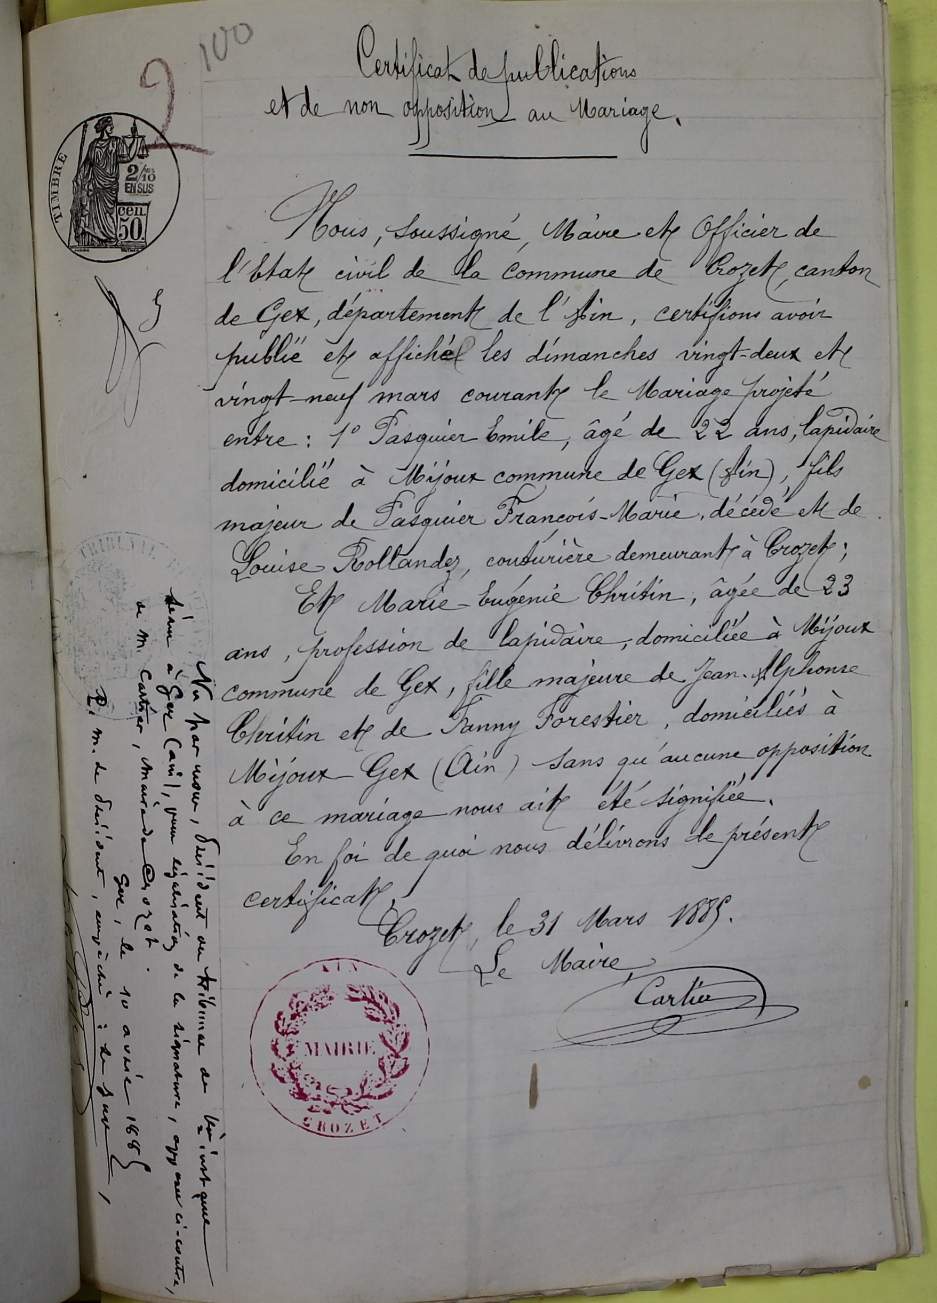 100
Certificat de publications
et de non opposition au Mariage.
TIMBRE
2/10
EN SUS
CEN.
50
Nous, soussigné, Maire et Officier de
l'Etat civil de la commune de Crozet, canton
de Gex, département de l'Ain, certifions avoir
publié et affiché les dimanches vingt-deux et
vingt-neuf mars courant le Mariage projeté
entre : 1° Pasquier Emile, âgé de 22 ans, lapidaire
domicilié à Mijoux commune de Gex (Ain), fils
majeur de Pasquier François-Marie, décédé et de
Louise Rollandez, couturière demeurant à Crozet ;
Et Marie-Eugénie Chritin, âgée de 23
ans, profession de lapidaire, domiciliée à Mijoux
commune de Gex, fille majeure de Jean-Alphonse
Chritin et de Fanny Forestier, domiciliés à
Mijoux-Gex (Ain) sans qu'aucune opposition
à ce mariage nous ait été signifiée.
En foi de quoi nous délivrons le présent
certificat.
Crozet, le 31 Mars 1885.
Le Maire,
Cartier
AIN
MAIRIE
CROZET
TRIBUNAL
Vu par nous, Président du tribunal de 1ère instance
séant à Gex (ain), pour légalisation de la signature, apposée ci-contre,
de M. Cartier, Maire de Crozet.
Gex, le 10 avril 1885
P. M. le Président, empêché : le Juge,